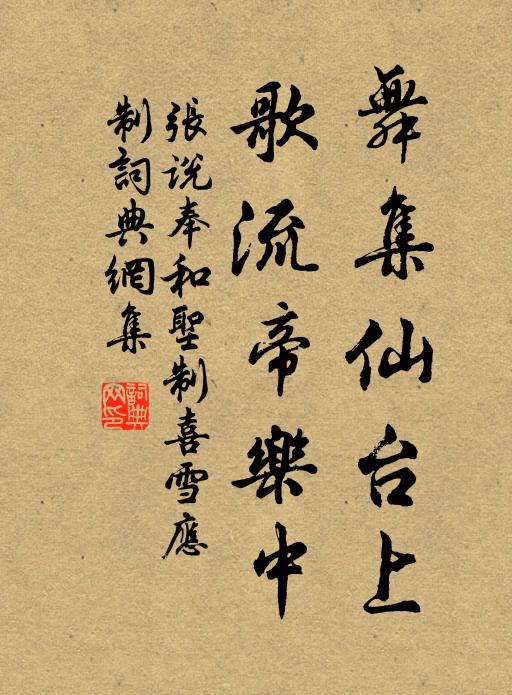 舞集仙台上
歌流帝樂中
張說奉和聖制喜雪應
制詞典網集
詞典
网印